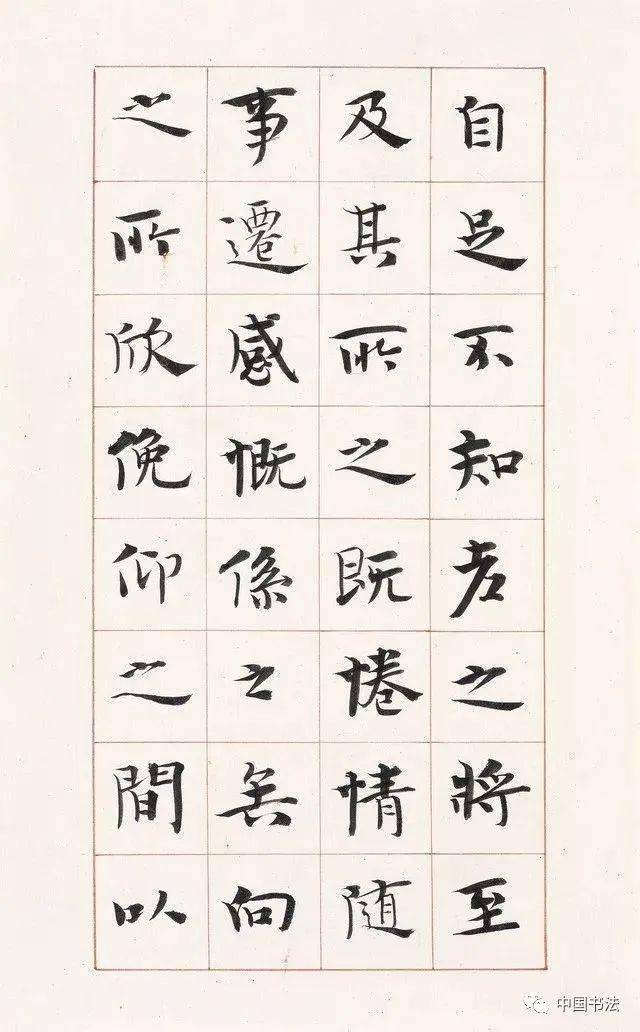 自足不知老之將至
及其所之既惓情隨
事遷感慨係之矣向
之所欣俛仰之間以
中国书法